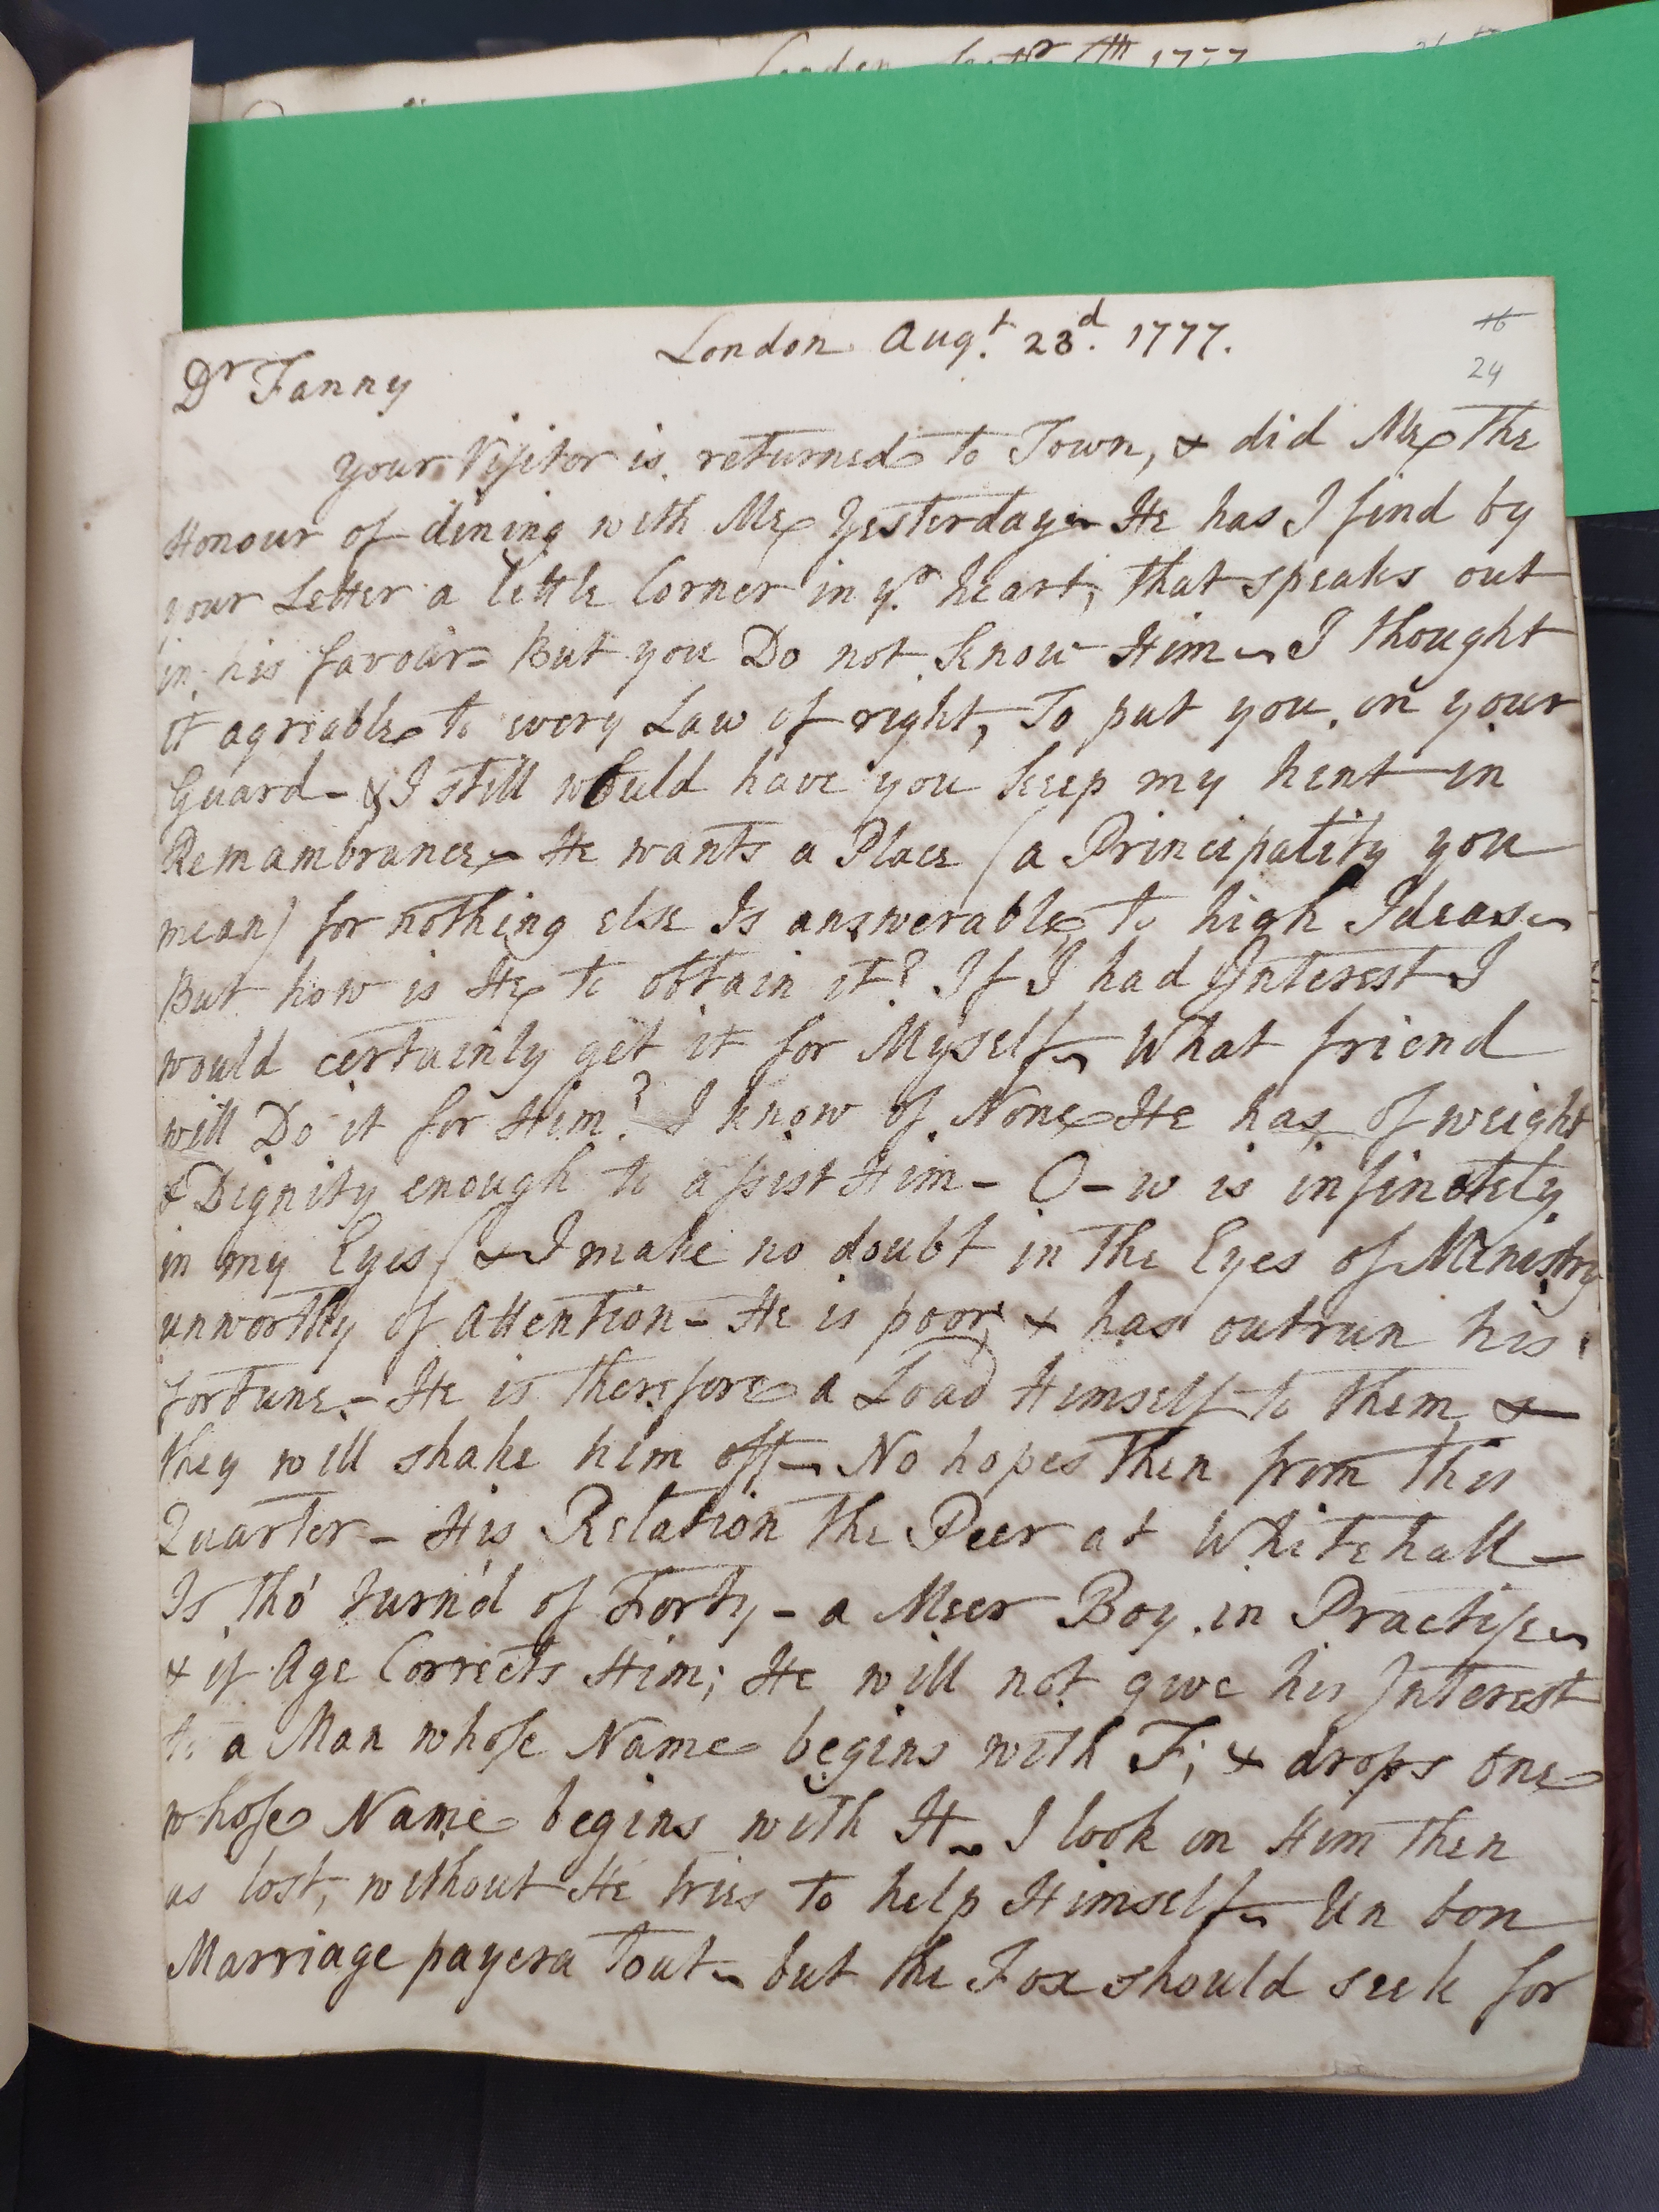 London Augt. 23d. 1777.
16
24
Dr Fanny
your Visitor is returned to Town, & did Me the
Honour of dining with Me Yesterday - He has I find by
your Letter a little Corner in yr. heart, that speaks out
in his favour - But you Do not know Him - I thought
it agreable to every Law of right, To put you on your
Guard - & I still would have you keep my hint in
Remambrance - He wants a Place (a Principality you
mean) for nothing else Is answerable to high Ideas -
But how is He to obtain it? If I had Interest I
would certainly get it for Myself - What friend
will Do it for Him? I know of None He has, of weight
& Dignity enough to assist Him - O-w is infinitely
in my Eyes (& I make no doubt in the Eyes of Ministry
unworthy of attention - He is poor, & has outrun his
fortune - He is therefore a Load Himself to them, &
they will shake him off - No hopes then from this
Quarter - His Relation the Peer at Whitehall -
Is tho' turn'd of Forty - a Meer Boy in Practise -
& if Age Corrects Him; He will not give his Interest
to a Man whose Name begins with F; & drops one
whose Name begins with H - I look on Him then
as lost, without He tries to help Himself - Un bon
Marriage payera tout - but the Fox should seek for